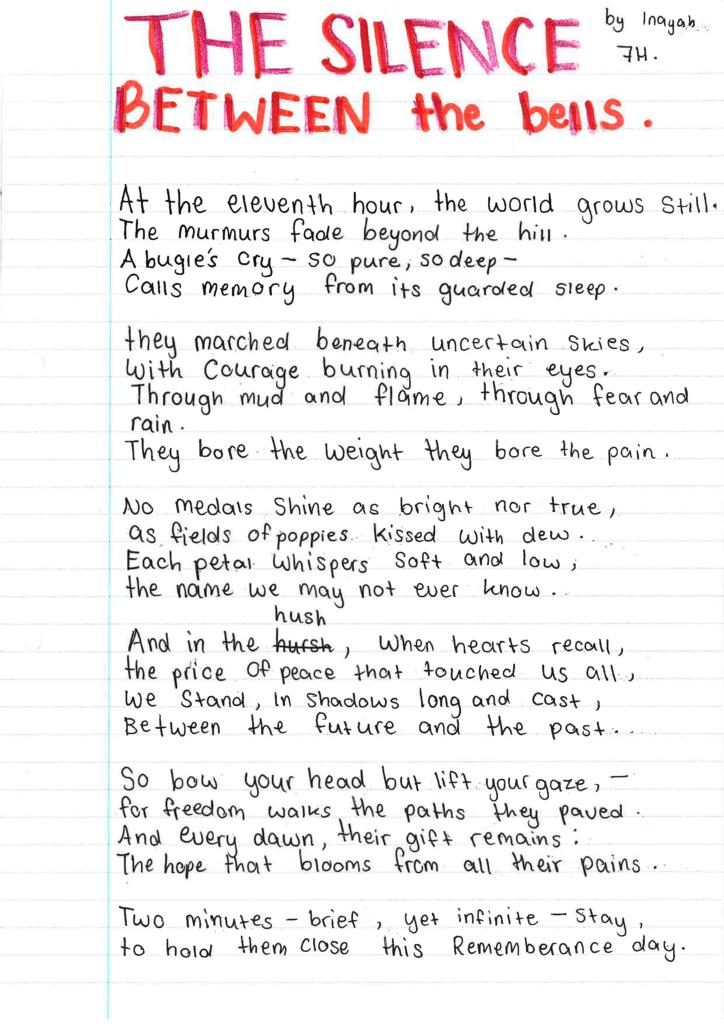 THE SILENCE
by Inayah
7H.
BETWEEN the bells.
At the eleventh hour, the world grows still.
The murmurs fade beyond the hill.
A bugle's cry - so pure, so deep -
Calls memory from its guarded sleep.
they marched beneath uncertain skies,
With Courage burning in their eyes.
Through mud and flame, through fear and
rain.
They bore the weight they bore the pain.
No medals Shine as bright nor true,
as fields of poppies kissed with dew.
Each petal whispers soft and low,
the name we may not ever know.
hush
And in the hursh, when hearts recall,
the price of peace that touched us all,
We Stand, in shadows long and cast,
Between the future and the past.
So bow your head but lift your gaze, -
for freedom walks the paths they paved.
And every dawn, their gift remains:
The hope that blooms from all their pains.
Two minutes - brief, yet infinite - stay,
to hold them close this Rememberance day.